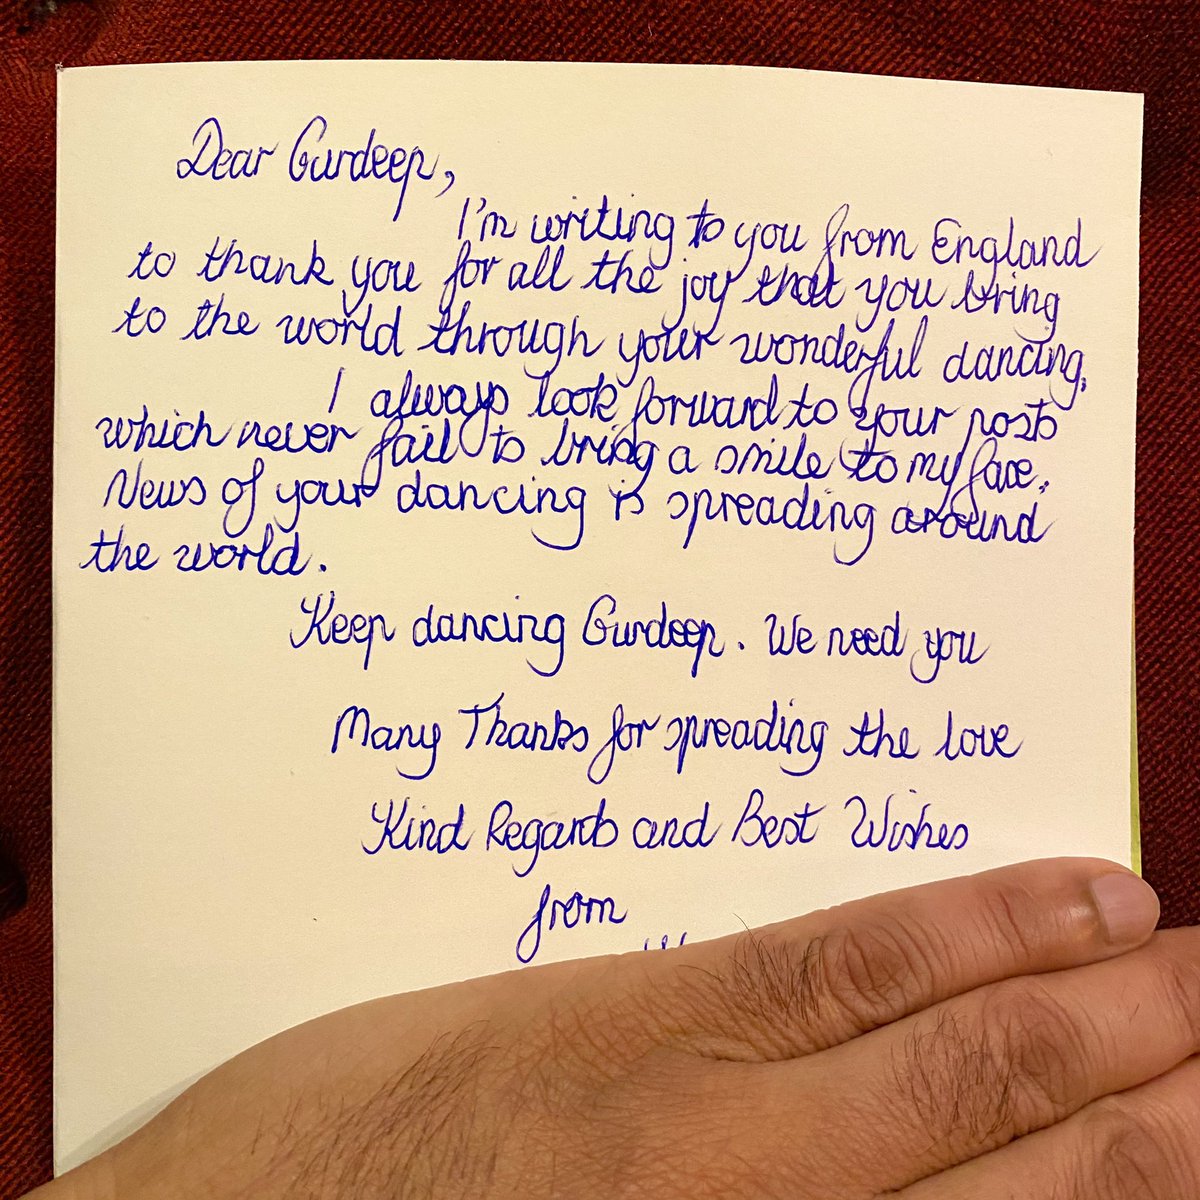 Dear Gurdeep,
I'm writing to you from England
to thank you for all the joy that you bring
to the world through your wonderful dancing.
I always look forward to your posts
which never fail to bring a smile to my face.
News of your dancing is spreading around
the world.
Keep dancing Gurdeep. We need you
Many Thanks for spreading the love
Kind Regards and Best Wishes
from